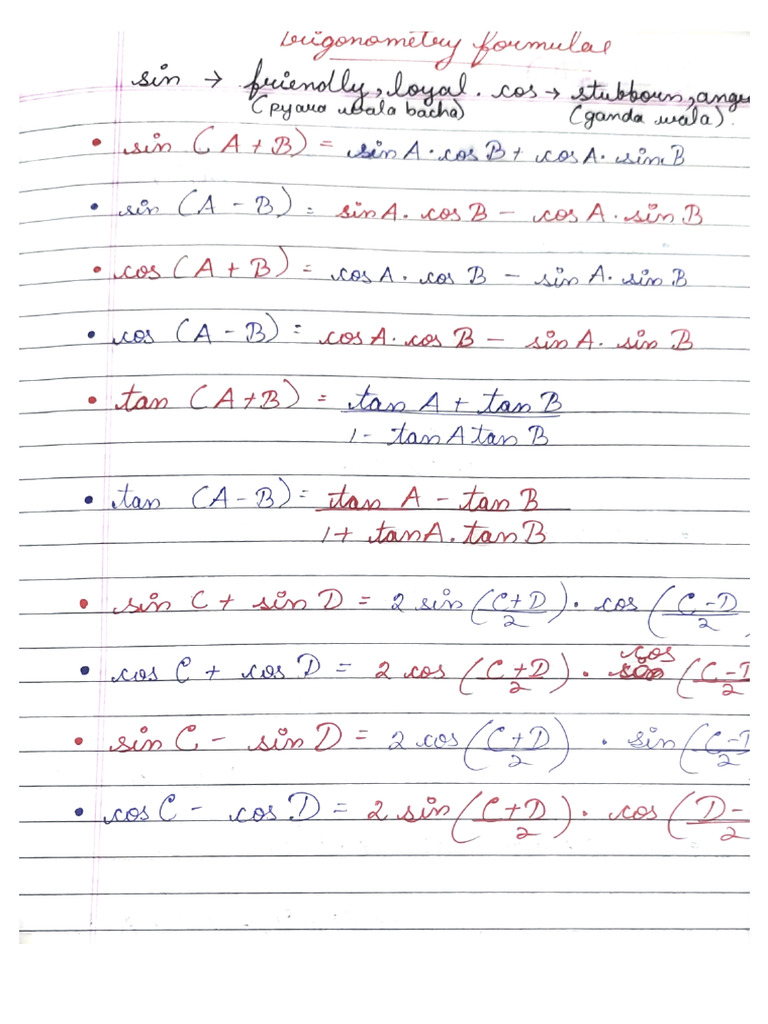 Trigonometry formulae
sin → friendly, loyal. cos → stubborn, angr
(pyara wala bacha) (ganda wala).
• sin (A + B) = sin A · cos B + cos A · sin B
• sin (A - B) = sin A · cos B - cos A · sin B
• cos (A + B) = cos A · cos B - sin A · sin B
• cos (A - B) = cos A · cos B - sin A · sin B
• tan (A + B) = tan A + tan B
1 - tan A tan B
• tan (A - B) = tan A - tan B
1 + tan A · tan B
• sin C + sin D = 2 sin (C+D)/2 · cos (C-D)/2
• cos C + cos D = 2 cos (C+D)/2 · cos (C-D/2
• sin C - sin D = 2 cos (C+D)/2 · sin (C-D/2
• cos C - cos D = 2 sin (C+D)/2 · cos (D-/2